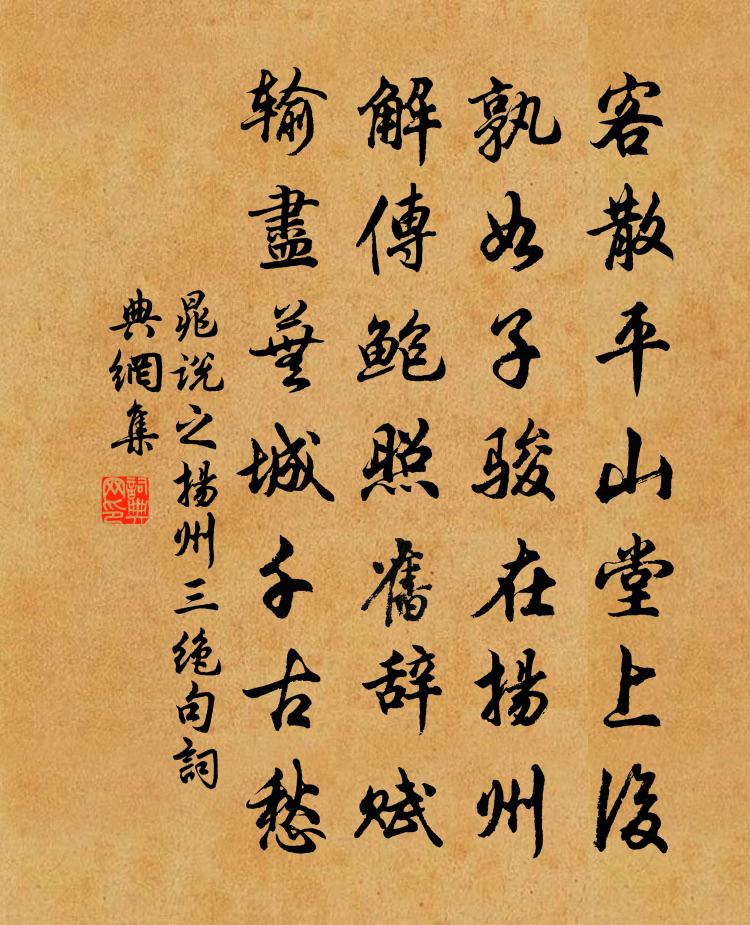 客散平山堂上後
孰如子駿在揚州
解傳鮑照舊辞賦
輸盡蕪城千古愁
晁說之揚州三絶句詞
典網集
詞典
网印